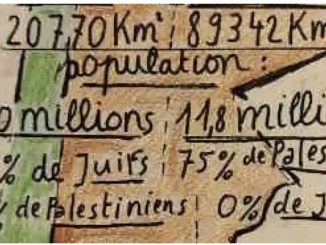 207,70 Km² 89342 Km
population :
0 millions 11,8 milli
% de Juifs 75% de Pales
% de Palestiniens 0% de J